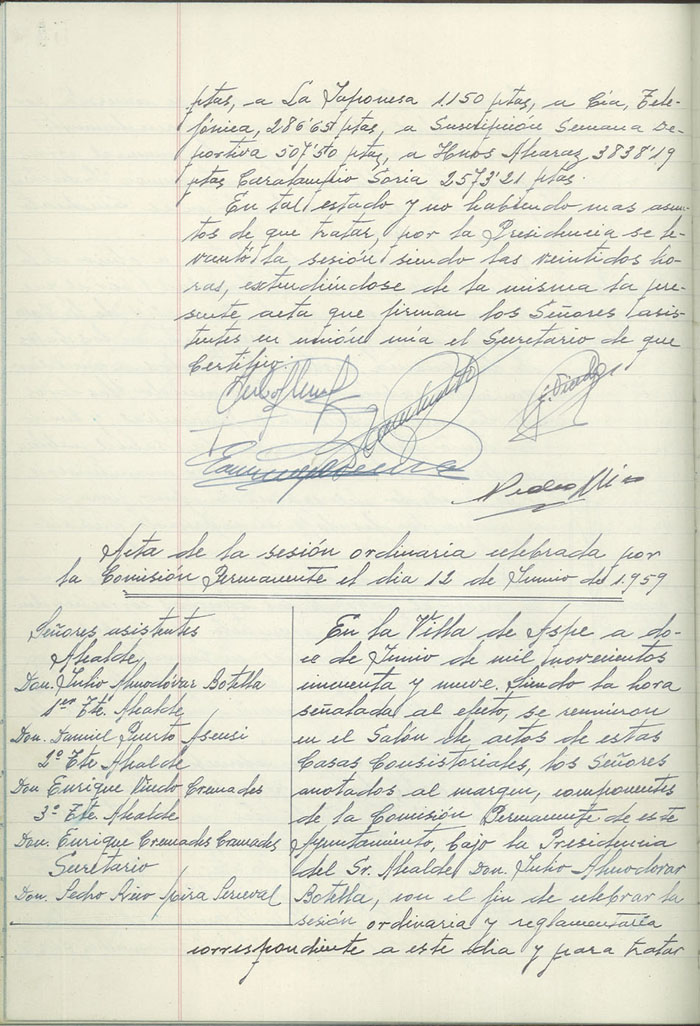 ptas, a La Japonesa 1.150 ptas, a Cía, Tele-
fónica, 286'65 ptas, a Suscripción Semana De-
portiva 507'50 ptas, a Hnos Alcaraz 3838'19
ptas Caralampio Soria 2573'21 ptas.
En tal estado y no habiendo mas asun-
tos de que tratar, por la Presidencia se le-
vantó la sesión siendo las veintidos ho-
ras, extendiéndose de la misma la pre-
sente acta que firman los Señores asis-
tentes en unión mía el Secretario de que
Certifico.
Pedro
Acta de la sesión ordinaria celebrada por
la Comisión Permanente el dia 12 de Junio de 1.959
Señores asistentes
Alcalde
Don. Julio Almodóvar Botella
1er Tte. Alcalde
Don. Damiel Puerto Asensi
2º Tte Alcalde
Don Enrique Cremades
3º Tte. Alcalde
Don. Enrique Cremades Cremades
Secretario
Don. Pedro Mira
En la Villa de Aspe a do-
ce de Junio de mil novecientos
cincuenta y nueve. Siendo la hora
señalada al efecto, se reunieron
en el Salón de actos de estas
Casas Consistoriales, los Señores
anotados al margen, componentes
de la Comisión Permanente de este
Ayuntamiento, bajo la Presidencia
del Sr. Alcalde Don. Julio Almodovar
Botella, con el fin de celebrar la
sesión ordinaria y reglamentaria
correspondiente a este dia y para tratar